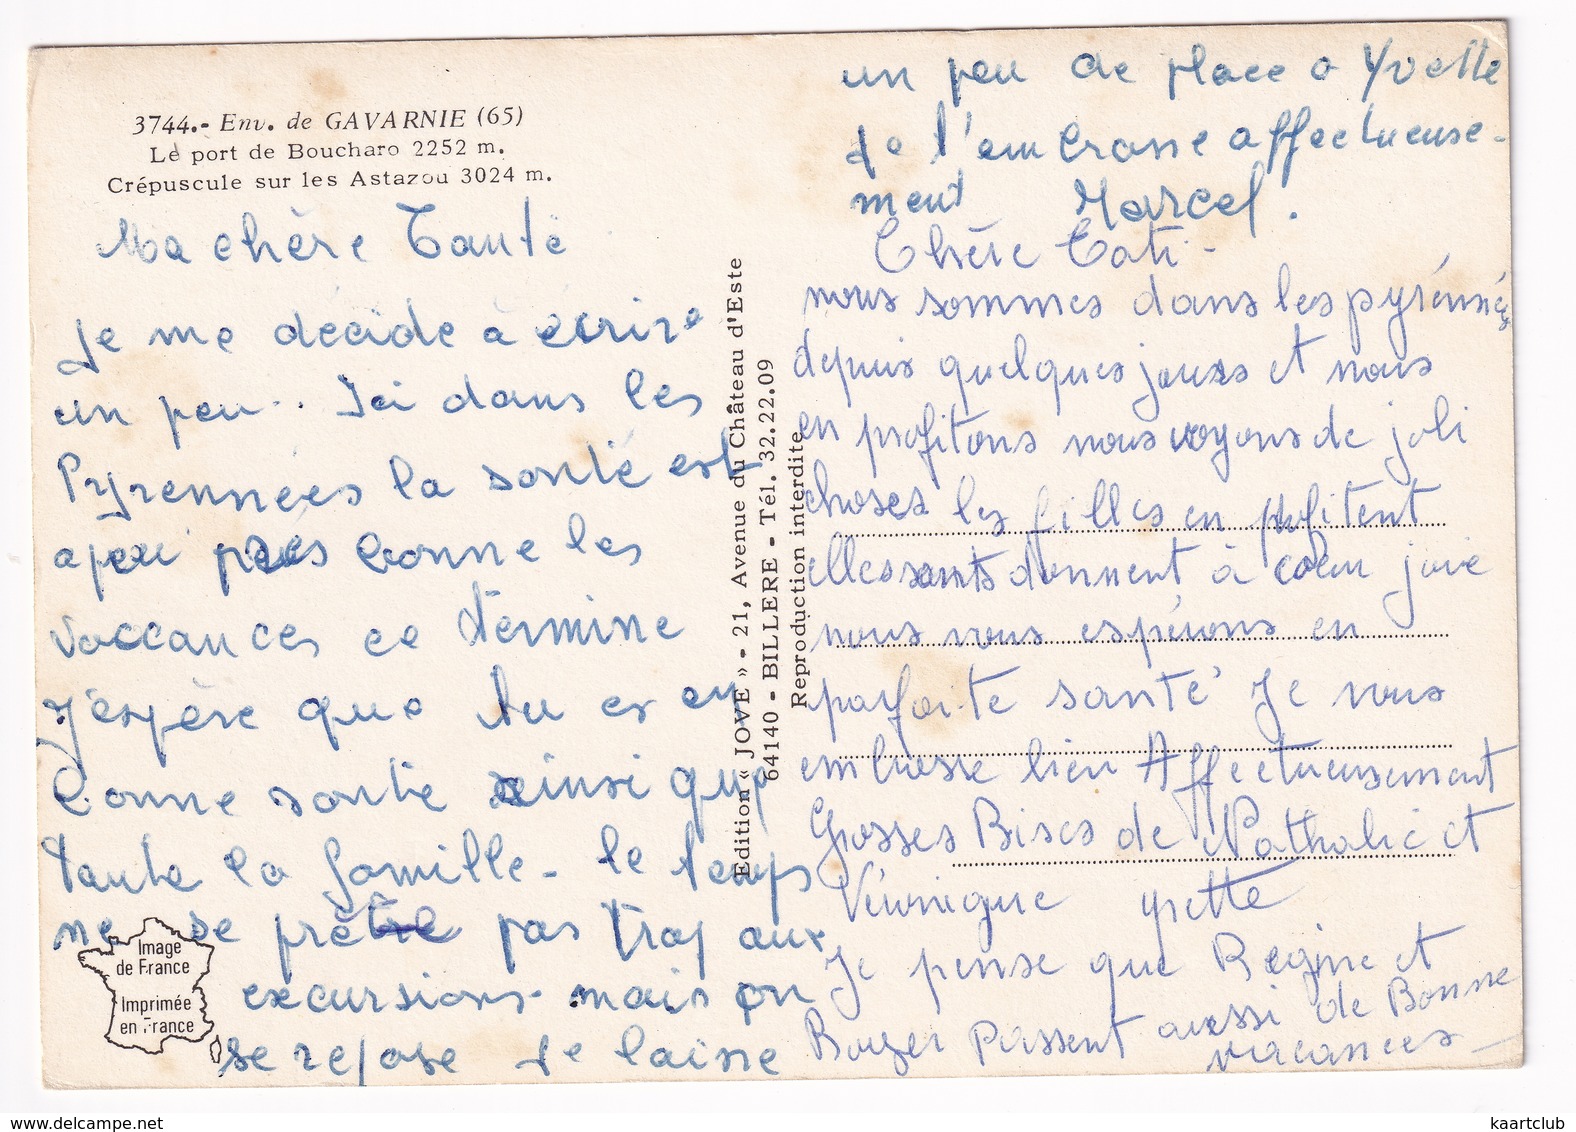 3744.- Env. de GAVARNIE (65)
Le port de Boucharo 2252 m.
Crépuscule sur les Astazou 3024 m.
Ma chère Tante
Je me décide à écrire
un peu.. Ici dans les
Pyrennées la santé est
a peu près bonne les
vaccances ce termine
J'éspère que tu es en
bonne santé ainsi que
taute la famille - le temps
ne se prête pas trop aux
excursions - mais on
se repose Je laisse
un peu de place a Yvette
Je t'embrasse affectueuse-
ment Marcel.
Chère Tati -
nous sommes dans les pyrénnées
depuis quelques jours et nous
en profitons nous voyons de joli
choses les filles en profitent
elles sants donnent à cœur joie
nous vous espérons en
parfaite santé Je vous
embrasse bien Affectueusement
Grosses Bises de Nathalie et
Véronique yvette
Je pense que Regine et
Roger Passent aussi de Bonne
vacances -
Edition « JOVE » - 21, Avenue du Château d'Este
64140 - BILLERE - Tél. 32.22.09
Reproduction interdite
Image
de France
Imprimée
en France
www.delcampe.net
kaartclub